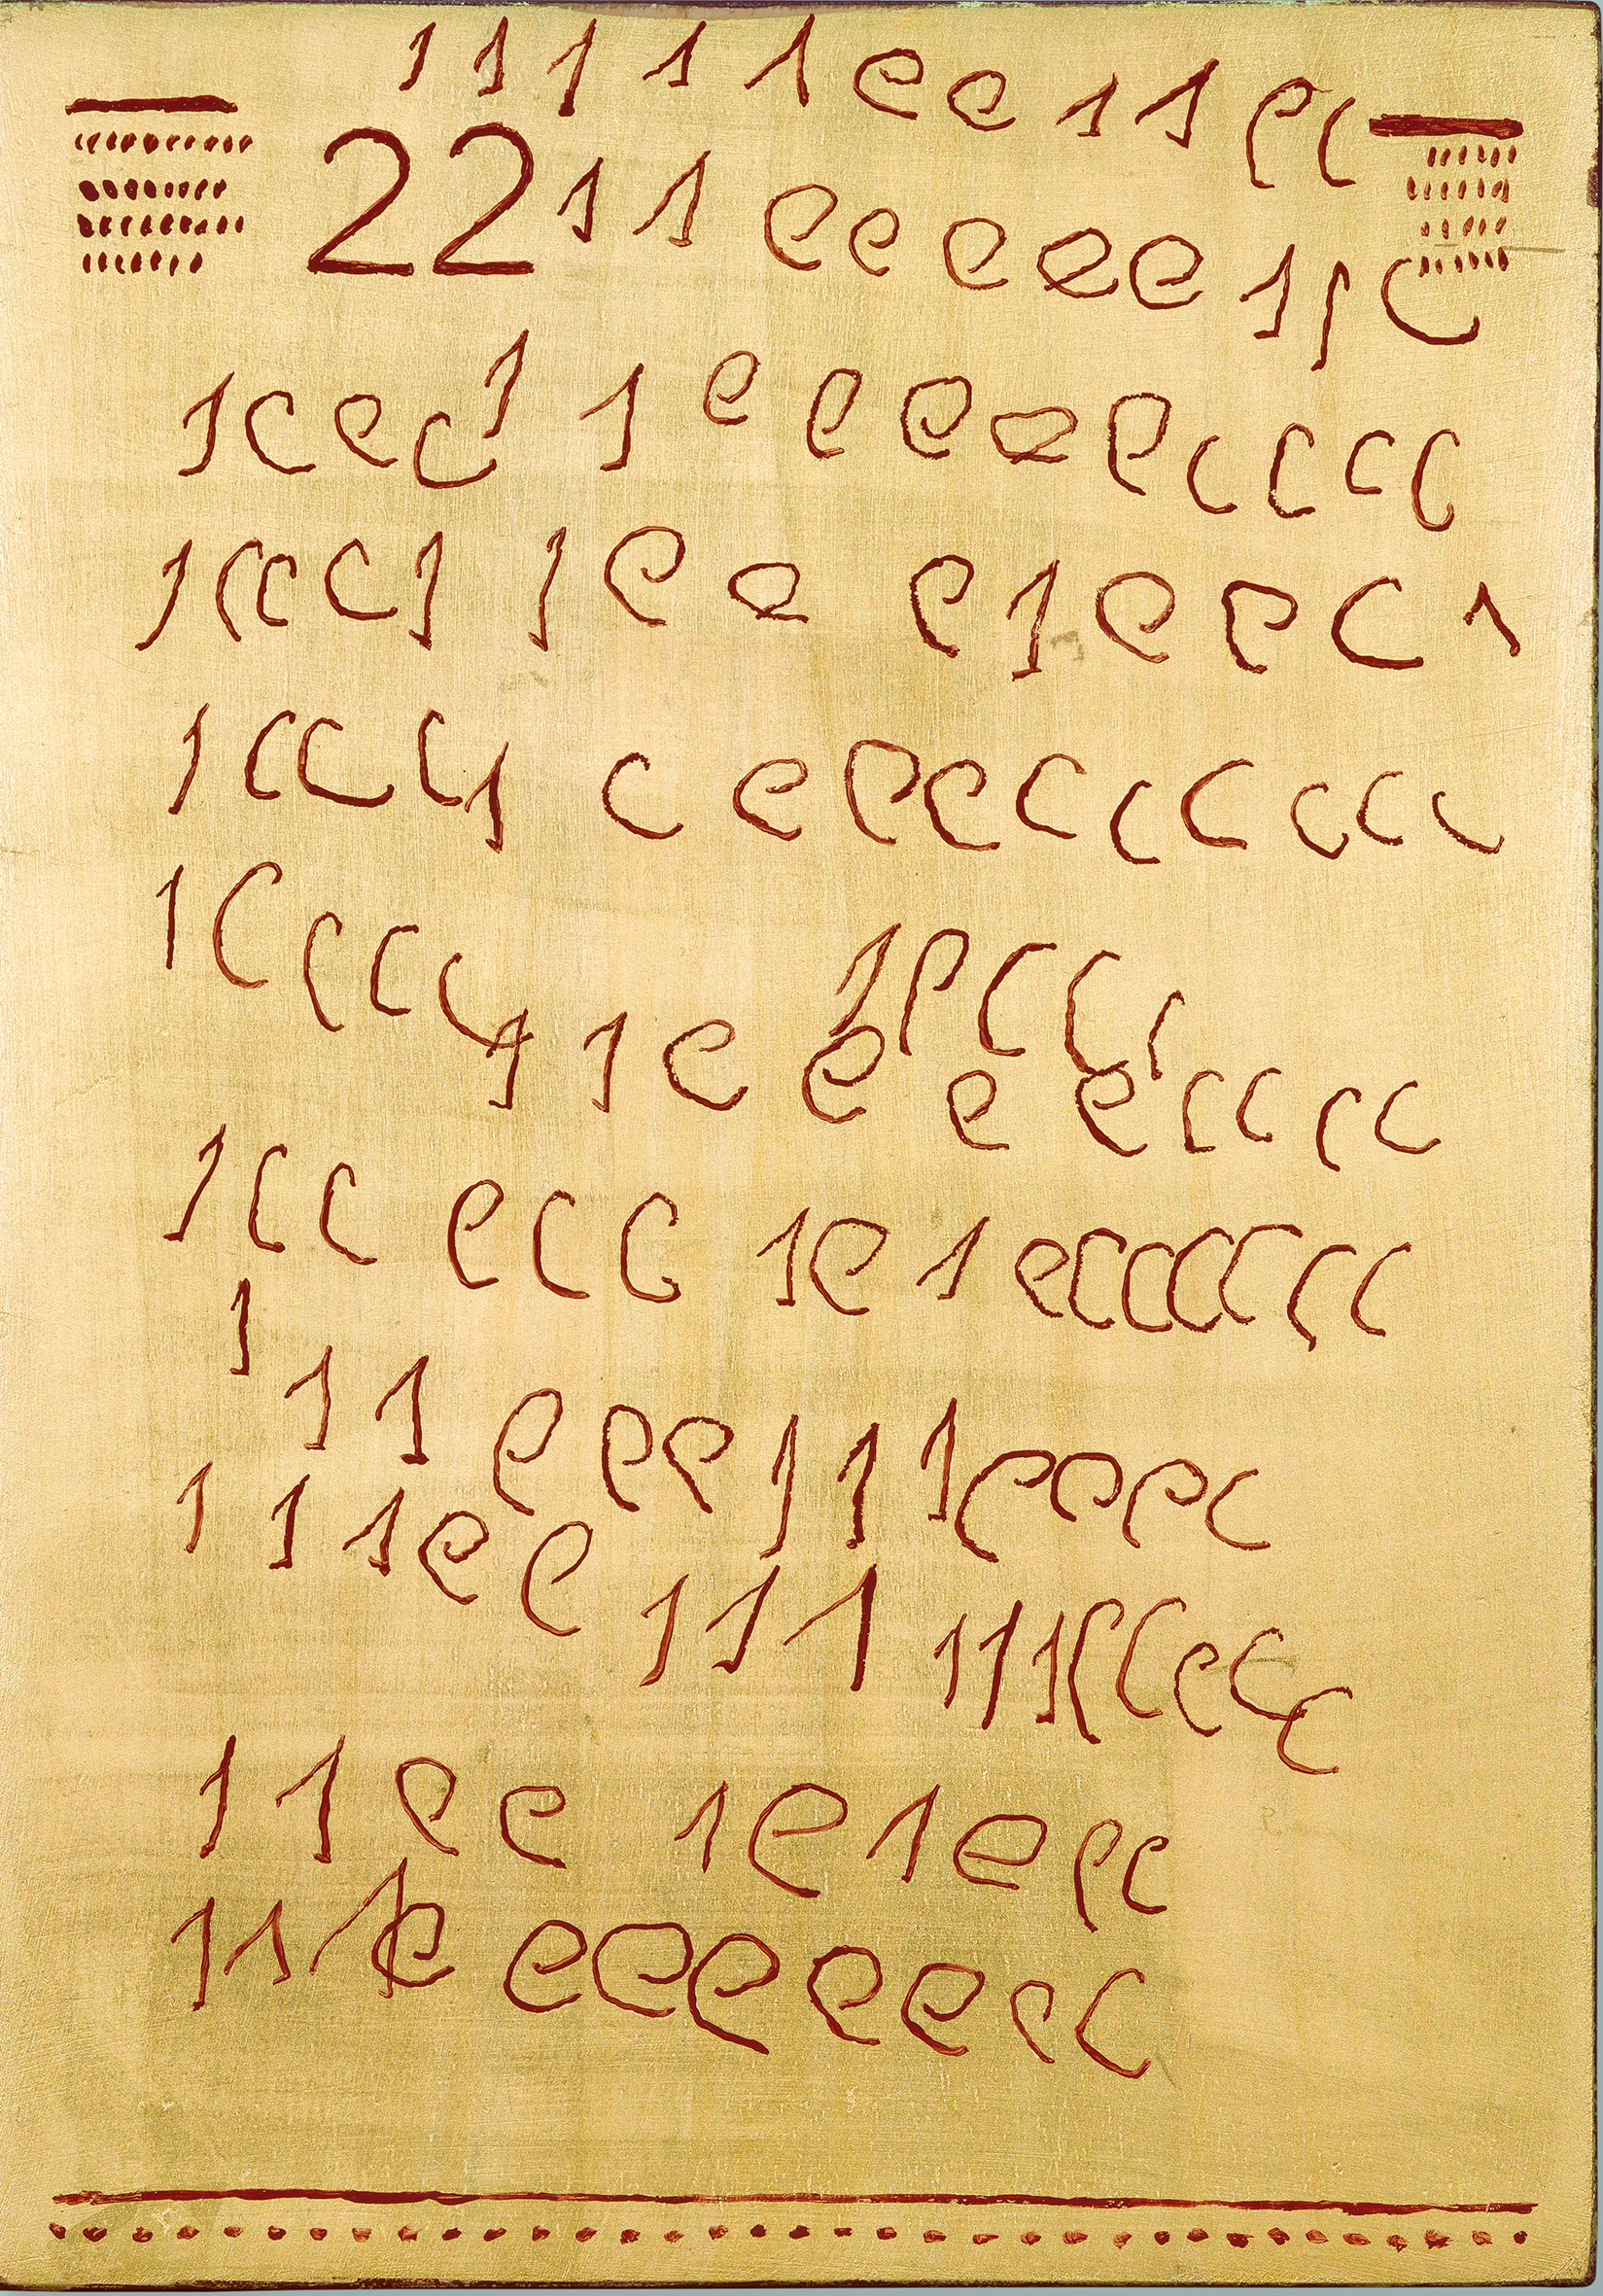 1 1 1 1 1 e e 1 1 e c
22 1 1 e e e e e 1 1 c
1 c e c 1 1 e e e e e c c c c
1 c c c 1 1 e e e 1 e e c 1
1 c c c 1 c e e e c c c c c c
1 c c c c 1 e c c c
1 1 e e e e c c c c
1 c c e c c 1 e 1 e c c c c c c
1
1 1 e e e 1 1 1 e e e c
1 1 1 e e 1 1 1 1 1 1 c c e c c
1 1 e e 1 e 1 e e e
1 1 1 e e e e e e e c